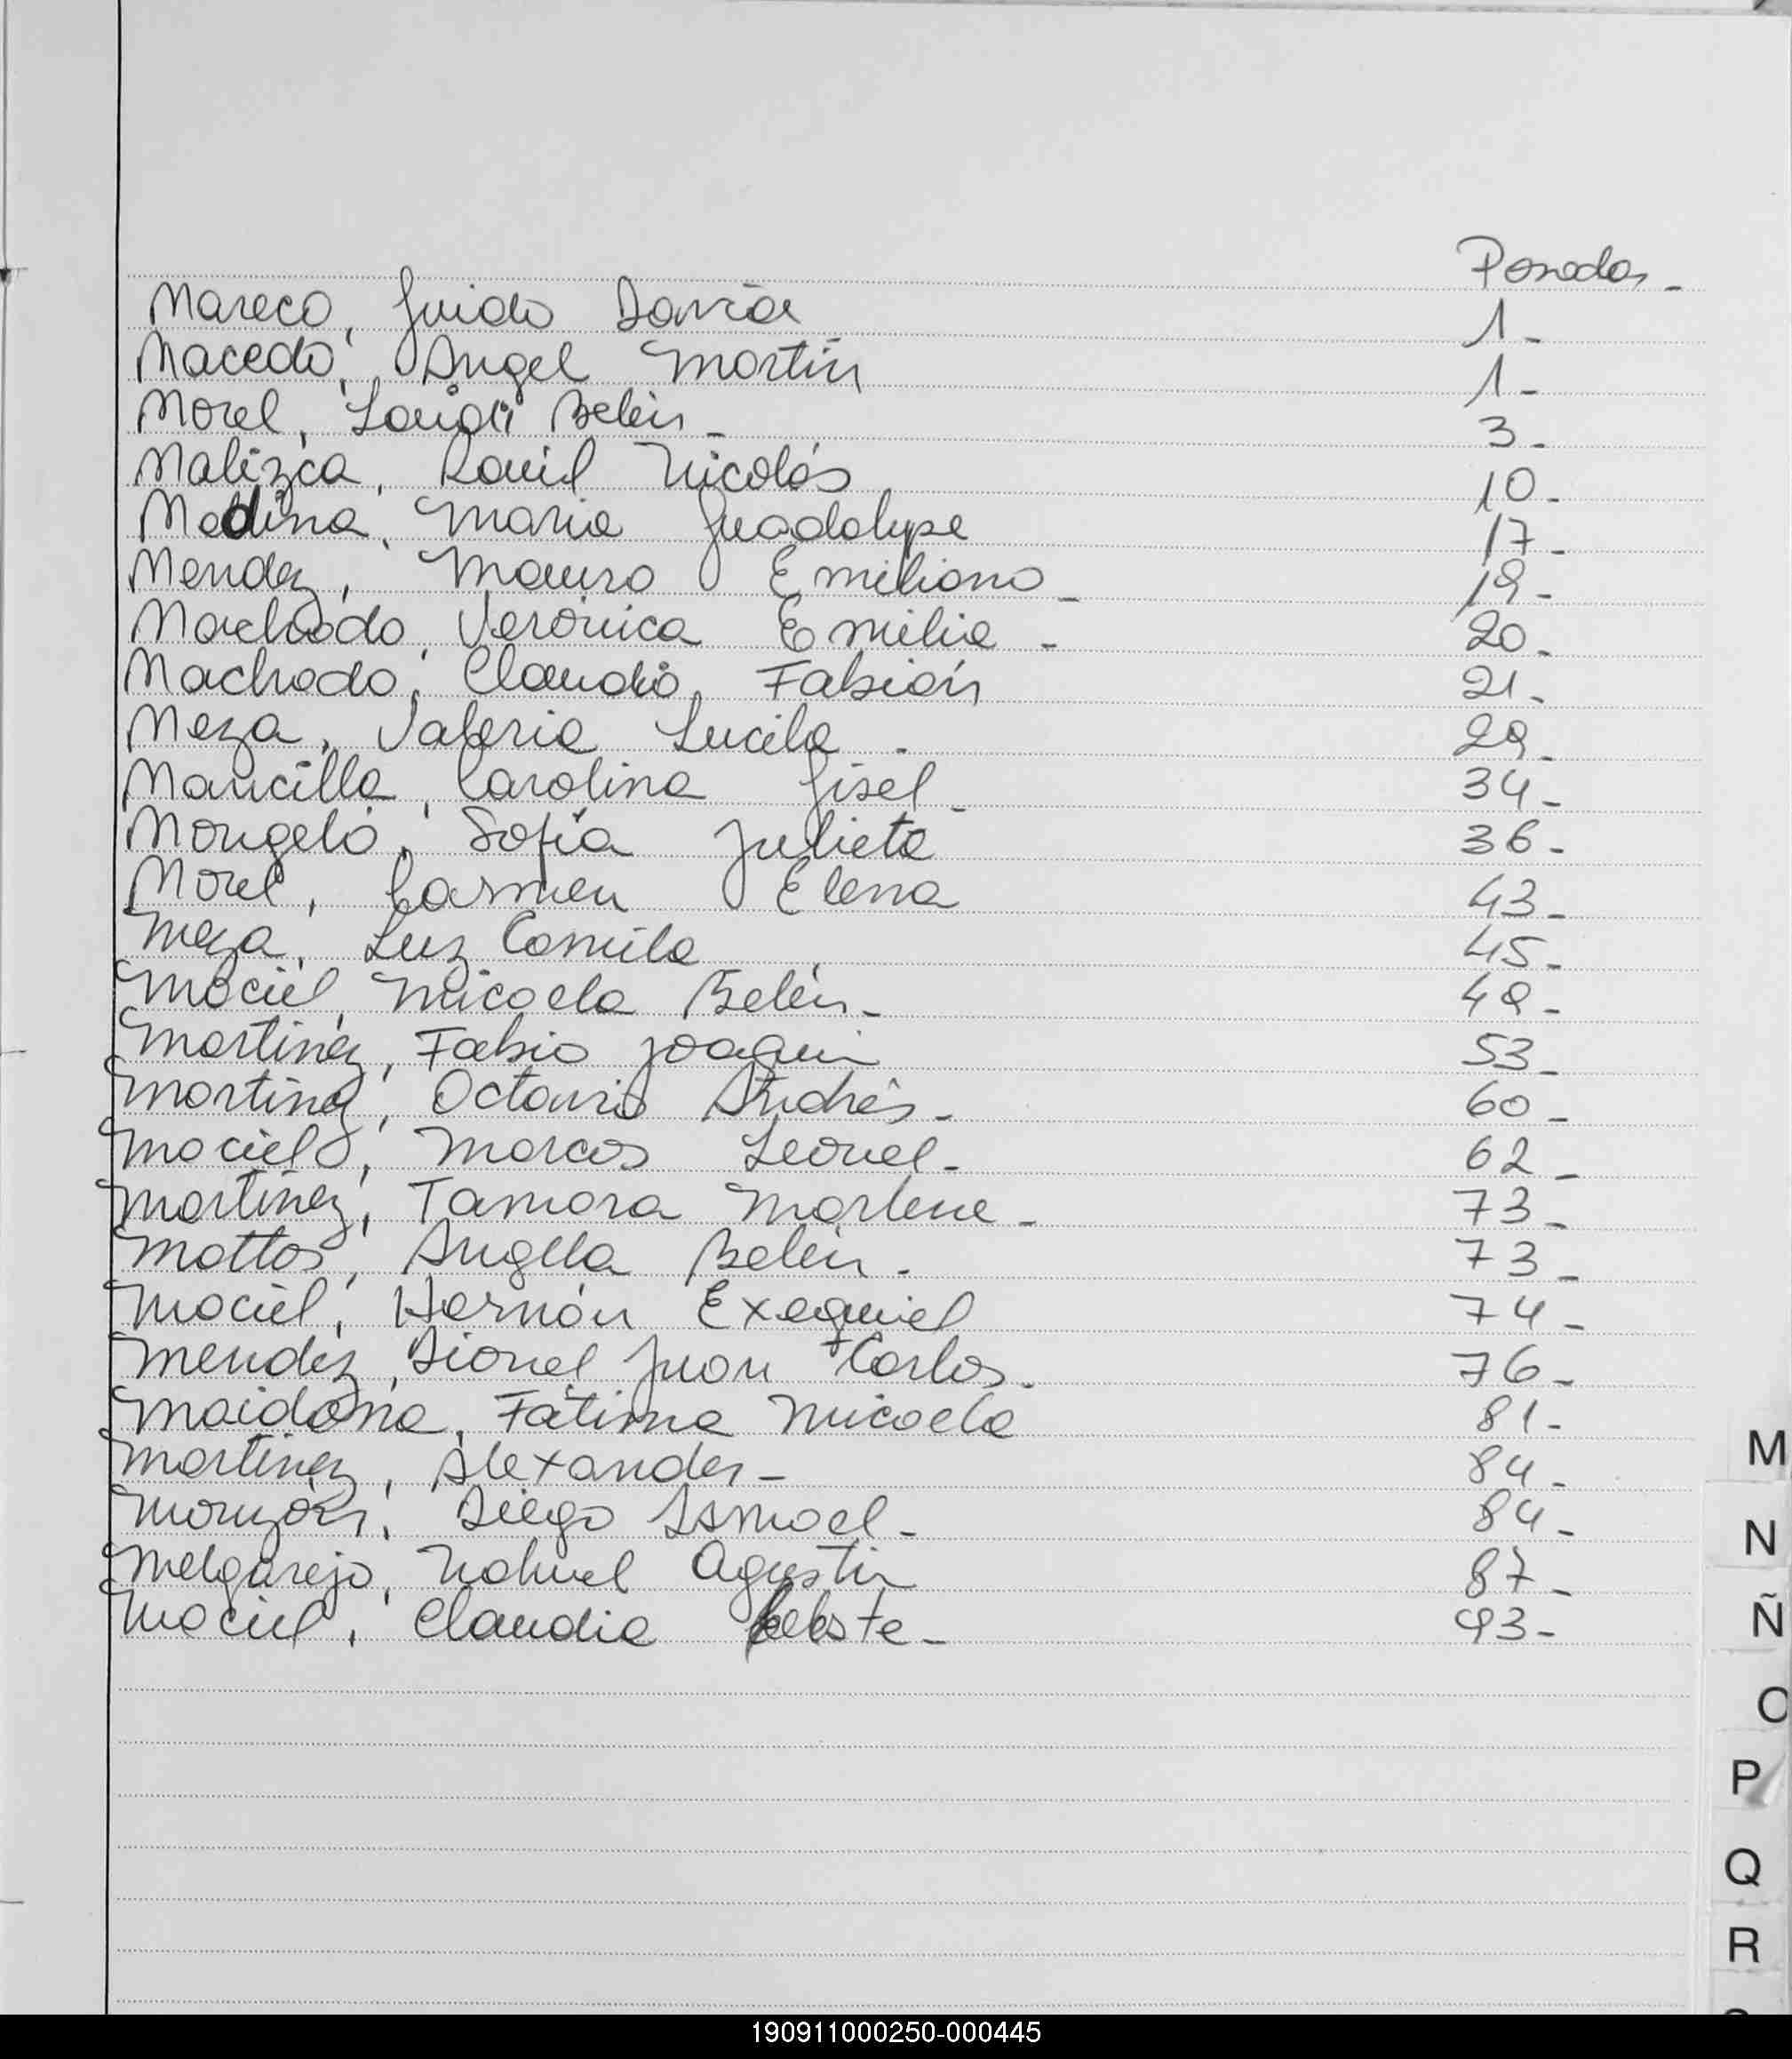 Posadas -
Mareco, Guido Daniel 1 -
Macedo, Angel Martín 1 -
Morel, Belén - 3 -
Malizca, Raúl Nicolás 10 -
Medina, Maria Guadalupe 17 -
Mendez, Mauro Emiliano - 19 -
Machado, Verónica Emilia - 20 -
Machado, Claudio Fabián 21 -
Meza, Valeria Lucila - 29 -
Mancilla, Carolina Gisel - 34 -
Mongeló, Sofía Julieta 36 -
Morel, Carmen Elena 43 -
Meza, Luz Camila 45 -
Maciel, Micaela Belén - 49 -
Martinez, Fabio Joaquin 53 -
Martinez, Octavio Andrés - 60 -
Maciel, Marcos Leonel - 62 -
Martinez, Tamara Marlene - 73 -
Mattos, Angela Belén - 73 -
Maciel, Hernán Exequiel 74 -
Mendez, Lionel Juan Carlos - 76 -
Maidana, Fátima Micaela 81 -
Martinez, Alexander - 84 -
Monzón, Diego Ismael - 84 -
Melgarejo, Nahuel Agustin 87 -
Maciel, Claudia Celeste - 93 -
M
N
Ñ
O
P
Q
R
190911000250-000445